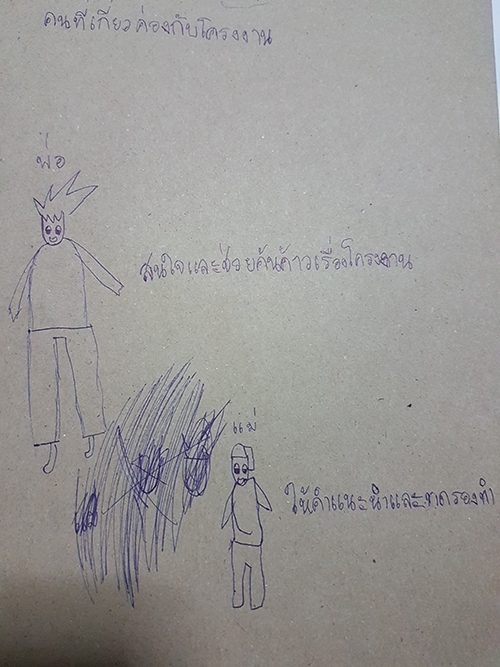 คนที่เกี่ยวค่องกับโครงงาน
พ่อ
สนใจและช่วยค้นค้าวเรื่องโครงงาน
แม่
ให้คำแนะนำและทดรองทำ